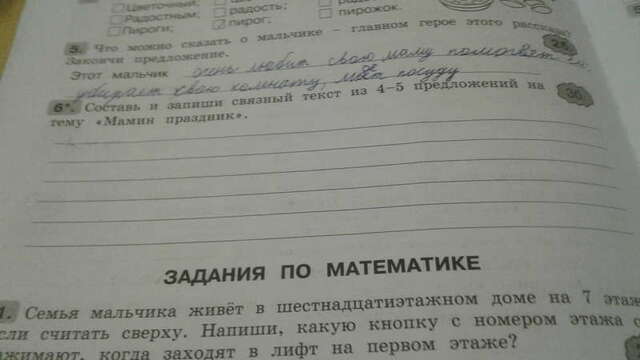 Цветочный;
Радостным; радость; пирожок.
Пироги; пирог;
5. Что можно сказать о мальчике – главном герое этого рассказа?
Закончи предложение.
Этот мальчик очень любит свою маму помогает ей
убирает свою комнату, моет посуду
6*. Составь и запиши связный текст из 4–5 предложений на
тему «Мамин праздник».
ЗАДАНИЯ ПО МАТЕМАТИКЕ
1. Семья мальчика живёт в шестнадцатиэтажном доме на 7 этаже
если считать сверху. Напиши, какую кнопку с номером этажа
нажимают, когда заходят в лифт на первом этаже?